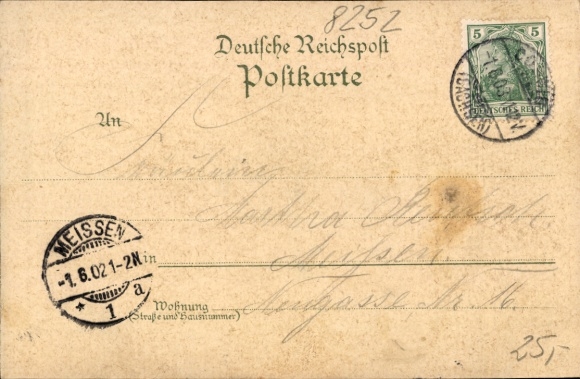 8252
Deutsche Reichspost
Postkarte
5 5
DEUTSCHES REICH
(SACHSEN)
An
Fräulein
Martha
Meissen
in
MEISSEN
-1.6.02 1-2N.
* 1 a
Wohnung
(Straße und Hausnummer)
Neugasse Nr.
25,-